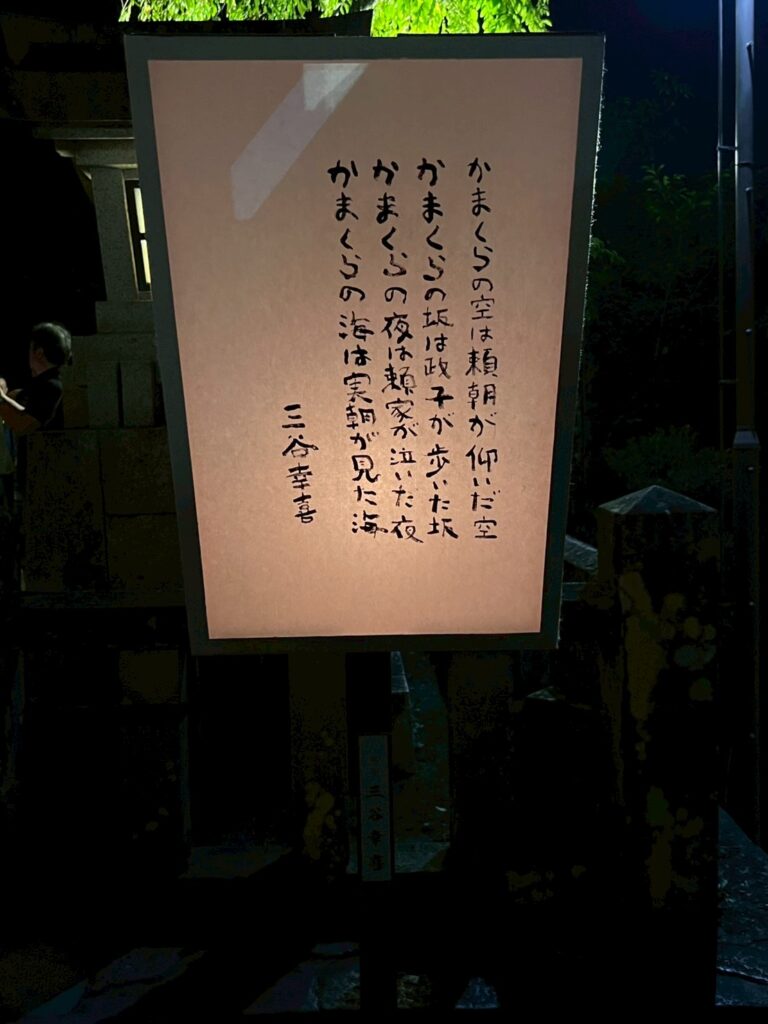 かまくらの空は頼朝が仰いだ空
かまくらの坂は政子が歩いた坂
かまくらの夜は頼家が泣いた夜
かまくらの海は実朝が見た海
三谷幸喜
三谷幸喜